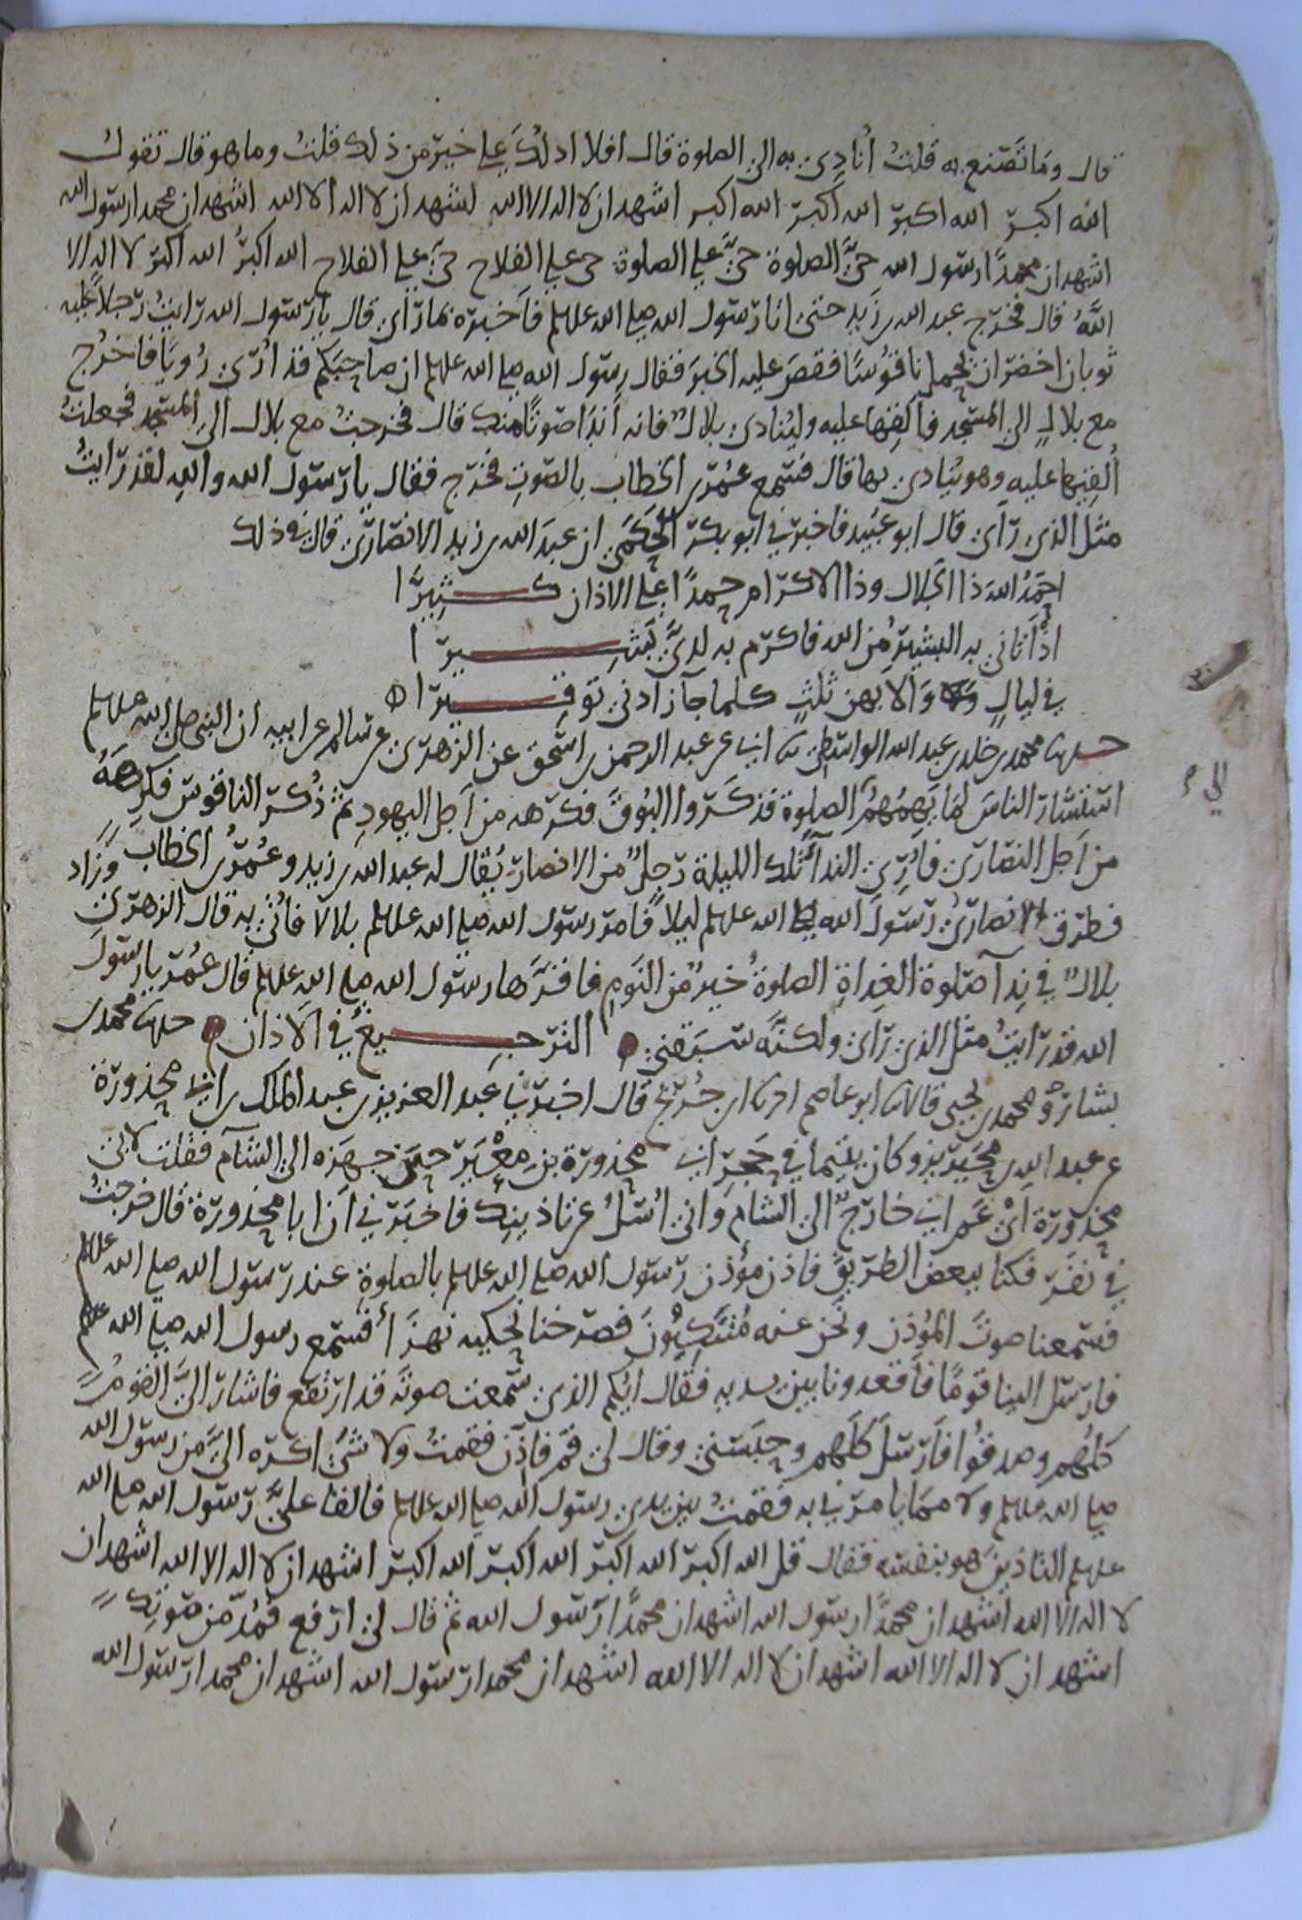 قال وما تصنع به قلت أنادي به الى الصلوة قال افلا ادلك على خير من ذلك قلت وما هو قال تقول
الله اكبر الله اكبر الله أكبر الله اكبر اشهد ان لا اله الا الله اشهد ان لا اله الا الله اشهد ان محمدا رسول الله
اشهد ان محمدًا رسول الله حيَّ الصلوة حيَّ على الصلوة حي على الفلاح حيَّ على الفلاح الله اكبرُ الله اكبر لا اله الا
اللَّهُ قال فخرج عبد الله بن زيد حتى اتا رسول الله صلى الله علىهلم فأخبره بما رأى قال يا رسول الله رايتُ رجلاً عليه
ثوبان اخضران يحمل ناقوسًا فقصَّ عليه الخبرَ فقال رسول الله صلى الله علىهلم ان صاحبكم قد أُرى رُويًا فاخرُج
مع بلالٍ الى المسجد فألقِها عليه وليُنادى بلالٌ فانه أندا صوتًا منك قال فخرجتُ مع بلال الى المسجد فجعلتُ
أُلقيها عليه وهو يُنادى بها قال فسمع عُمر بن الخطاب بالصوتِ فخرج فقال يا رسول الله واللهِ لقد رايتُ
مثل الذي رأى قال ابو عُبَيد فاخبرني ابو بكر الحَكَمى ان عبدَ الله بن زيد الانصارى قال في ذلك
احمَدُ اللهَ ذا الجلال وذا الاكرام حمدًا على الاذان كثيرًا
اذ أتاني به البشيرُ من الله فاكرم به لديَّ بَشيرا
في ليالٍ وَالا بهن ثلثٍ كلما جآ زادني توقيرا
حدثنا محمد بن خالد بن عبد الله الواسطي ثنا ابي عن عبد الرحمن بن اسحق عن الزهرى عن سالم عن ابيه ان النبى صلى الله علىهلم
استشار الناسَ لما يَهمُهمُ الصلوة فذكروا البُوقَ فكرهه من أجل اليهودِ ثم ذُكر الناقوس فكرهَهُ
من أجل النصارى فأُرِى الندآ تلك الليلة رجلٌ من الانصار يُقال له عبد الله بن زيد وعُمرُ بن الخطاب
فطرق الانصارىُ رسولَ الله صلى الله علىهلم ليلاً فامر رسول الله صلى الله علىهلم بلالا فاُذِّن به قال الزهرى وزاد
بلالٌ في ندآ صلوة الغداةِ الصلوةُ خيرٌ من النوم فاقرَّها رسول الله صلى الله علىهلم قال عُمر يا رسولَ
الله قد رايتُ مثل الذي رأى ولكنَّه سبقني الترجيع في الاذان حدثنا محمد بن
بشارٍ ومحمد بن يحيى قالا ثنا ابو عاصم انا ابن جُرَيج قال اخبرني عَبد العزيز بن عبد الملك بن ابى محذورة
عن عبد الله بن مُحَيريز وكان يتيما في حَجر ابى محذورة بن مِعْيَر حين جهزه الى الشام فقلت لابى
محذورة أىْ عَم انى خارجٌ الى الشام وانى اُسئلُ عن تاذينك فاخبرني أن ابا محذورة قال خرجتُ
في نفَر فكنا ببعض الطريق فاذن مؤذن رسول الله صلى الله علىهلم بالصلوة عند رسول الله صلى الله علىهلم
فسمعنا صوتَ المُؤذن ونحن عنه مُتنَكِّبُونَ فصرخنا نحكيه نهزَأ فسمع رسول الله صلى الله علىهلم
فارسل الينا قومًا فأقعدونا بين يديه فقال ايُكم الذي سمعت صوتَه قد ارتفع فاشار الىَّ القومُ
كلُهم وصدقُوا فأرسل كلَهم وحبَسني وقال لى قم فاذن فقمتُ ولا شئ اكره اليَّ من رسول الله
صلى الله علىهلم ولا مما يا مرني به فقمتُ بين يدى رسول الله صلى الله علىهلم فالقا عليَّ رسول الله صلى الله
علىهلم التاذينَ هو بنفسه فقال قل الله اكبر الله اكبر الله اكبر الله اكبر اشهد ان لا اله الا الله اشهد ان
لا اله الا الله اشهد ان محمدًا رسول الله اشهد ان محمدًا رسول الله ثم قال لى ارفع فمُدَّ من صوتك
اشهد ان لا اله الا الله اشهد ان لا اله الا الله اشهد ان محمدا رسول الله اشهد ان محمدا رسول الله